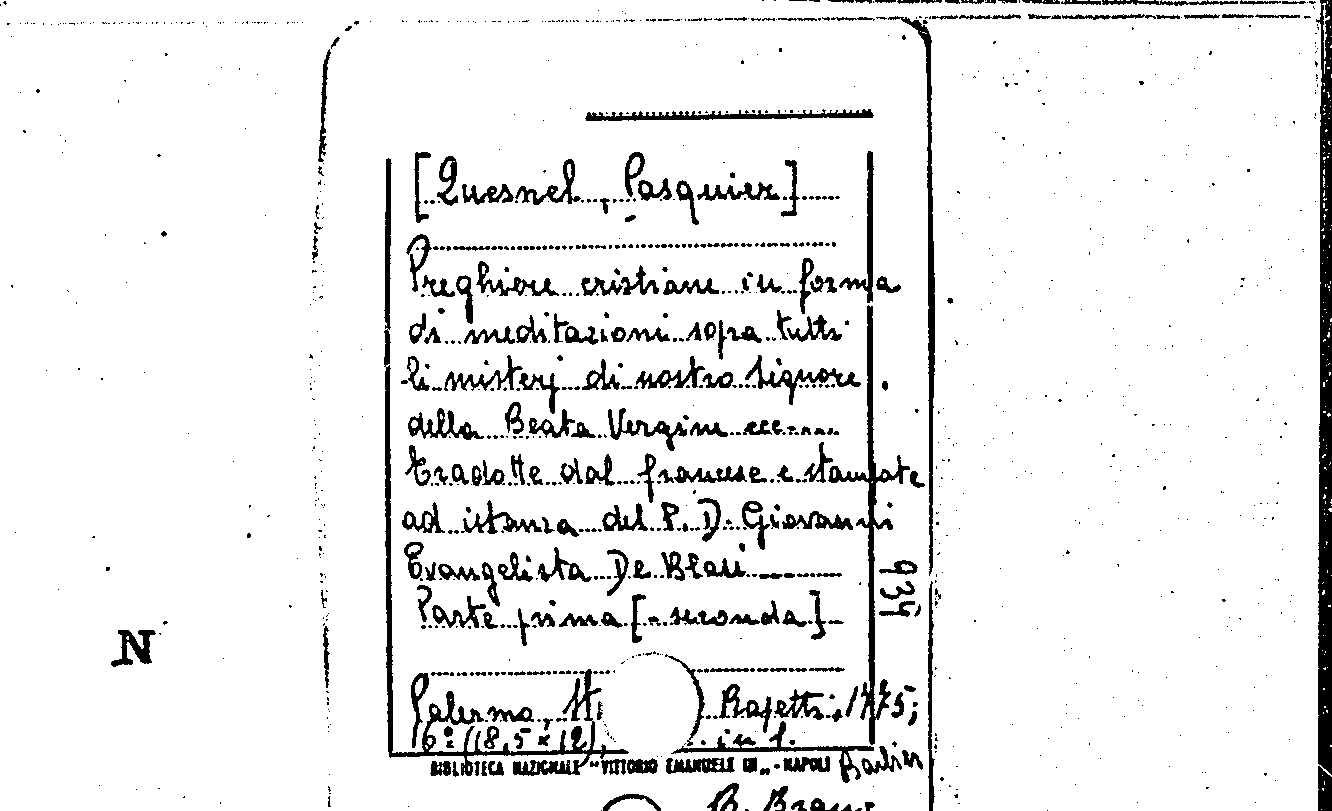 [Quesnel, Pasquier]
Preghiere cristiane in forma
di meditazioni sopra tutti
li misterj di nostro Signore
della Beata Vergine ecc....
Tradotte dal francese e stampate
ad istanza del P. D. Giovanni
Evangelista De Blasi
934
Parte prima [- seconda]
N
Palermo, Rapetti, 1775;
16°: (18,5 x 12), in 1.
BIBLIOTECA NAZIONALE "VITTORIO EMANUELE III" - NAPOLI Barbier
B.